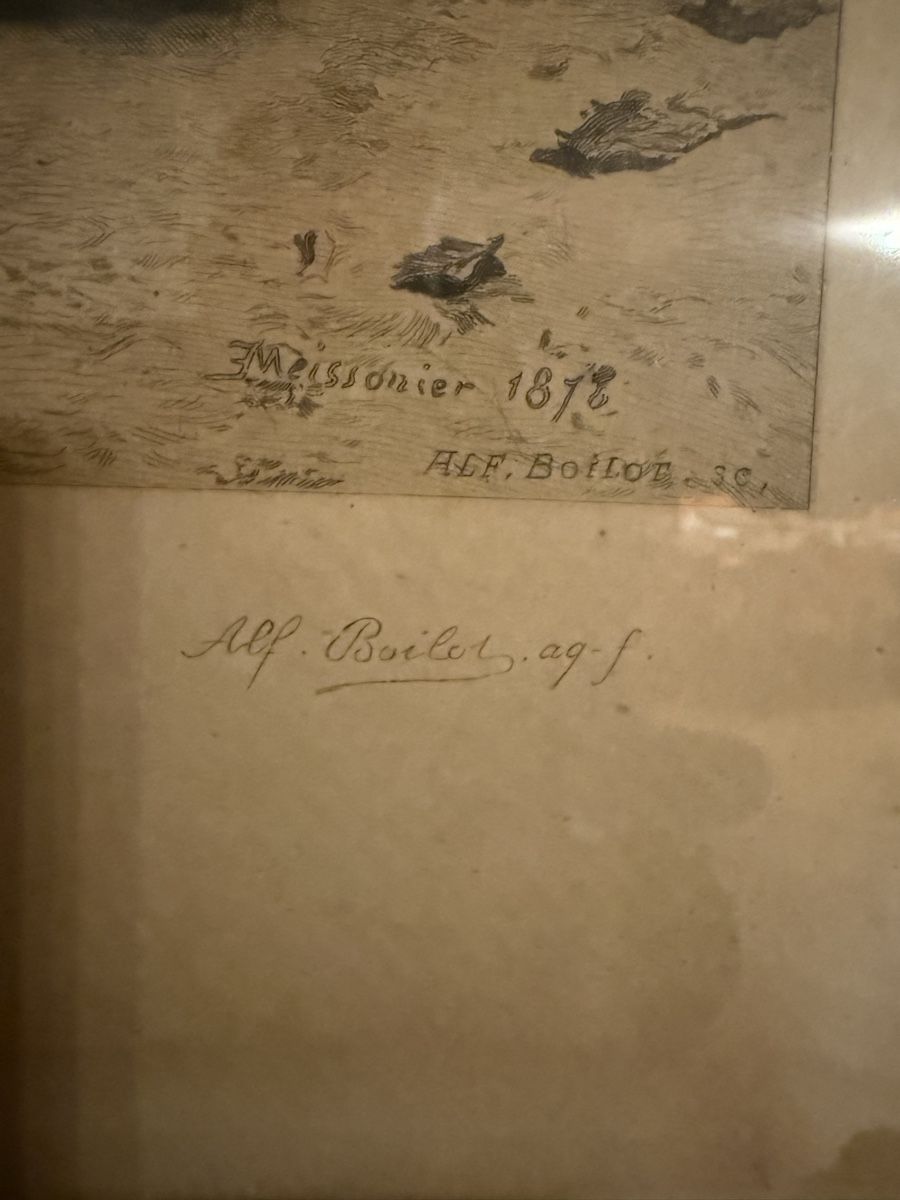 EMeissonier 1878
ALF. BOILOT. SC.
Alf. Boilot. aq-f.